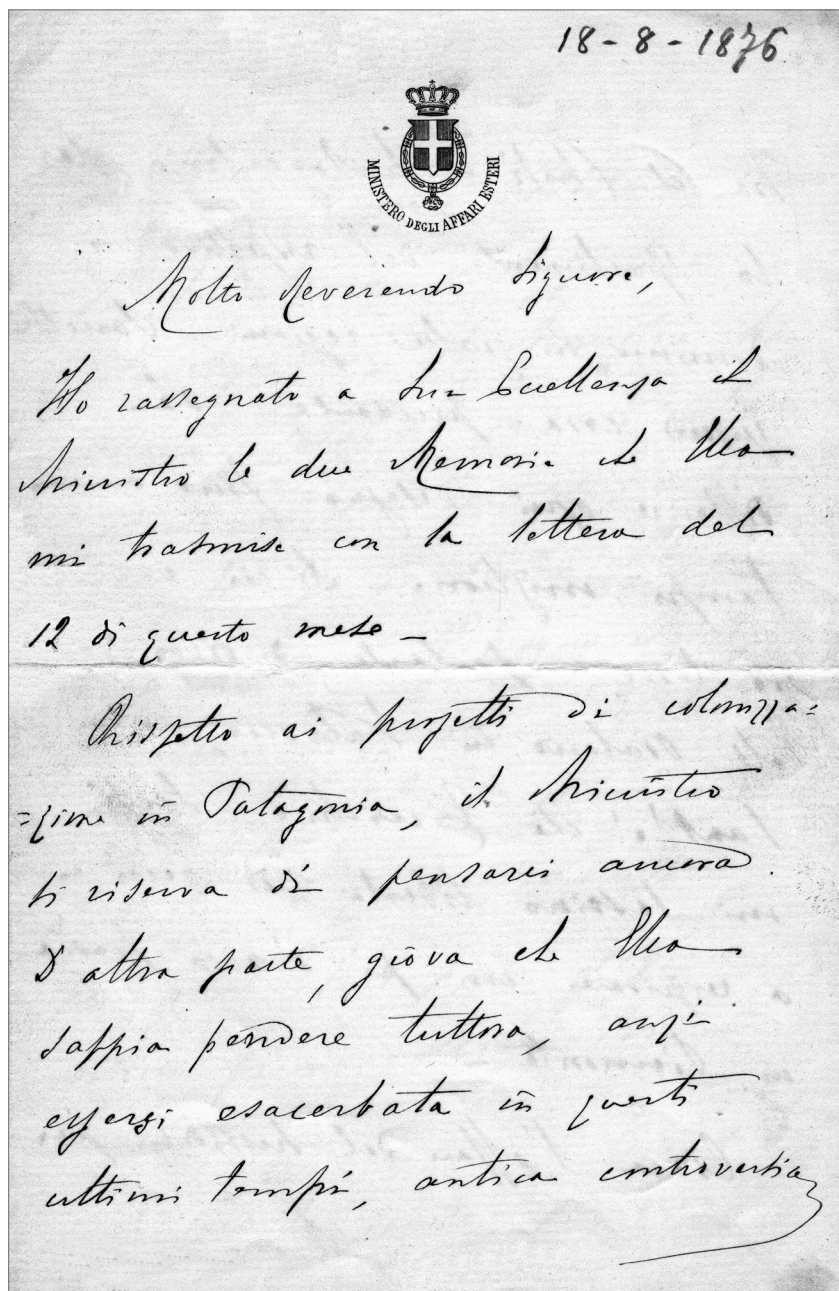 18-8-1876
MINISTERO DEGLI AFFARI ESTERI
Molto Reverendo Signore,
Ho rassegnato a Sua Eccellenza il
Ministro le due Memorie che Ella
mi trasmise con la lettera del
12 di questo mese -
Rispetto ai progetti di colonizza=
=zione in Patagonia, il Ministro
si riserva di pensarci ancora.
D'altra parte, giova che Ella
sappia pendere tuttora, anzi
essersi esacerbata in questi
ultimi tempi, antica controversia